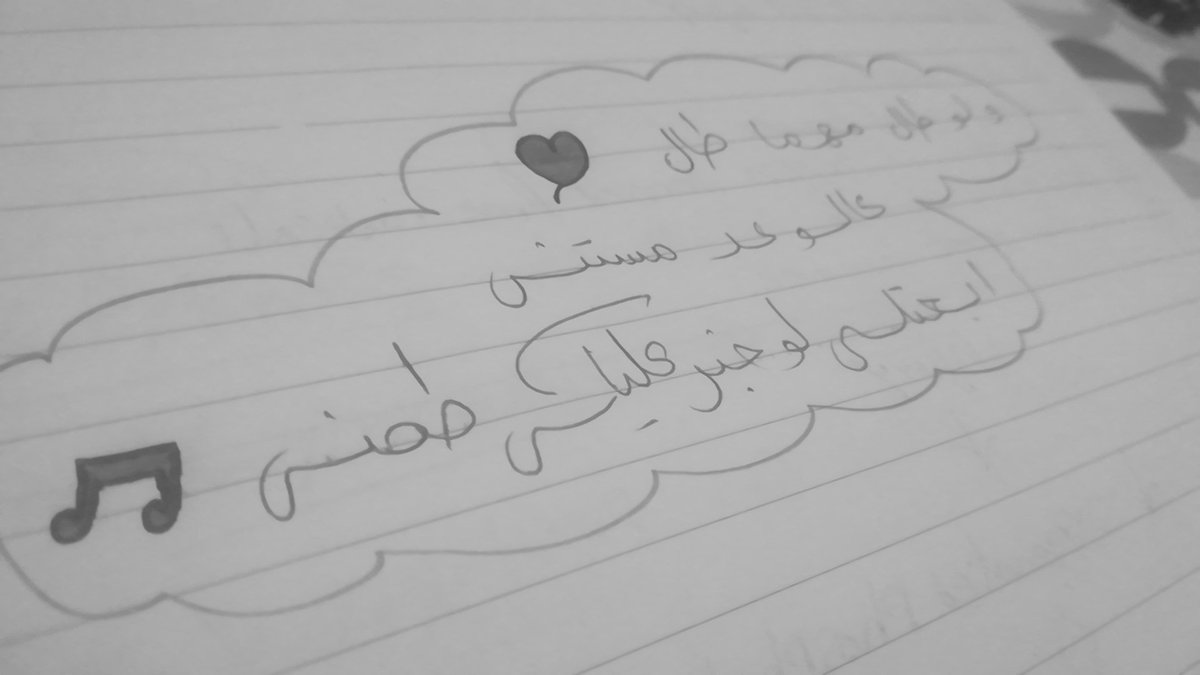 ولو طال مهما طال
عالوعد مستني
ابعتلي لو جنرعليكي طمني